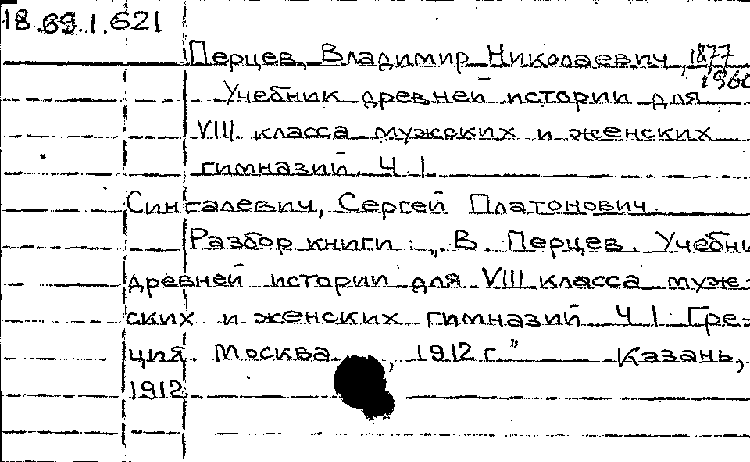 18.69.1.621
Перцев, Владимир Николаевич, 1877
1960
Учебник древней истории для
VIII класса мужских и женских
гимназий. Ч I.
Сингалевич, Сергей Платонович.
Разбор книги: „В. Перцев. Учебни
древней истории для VIII класса муже-
ских и женских гимназий Ч I Гре-
ция. Москва, 1912 г." Казань,
1912